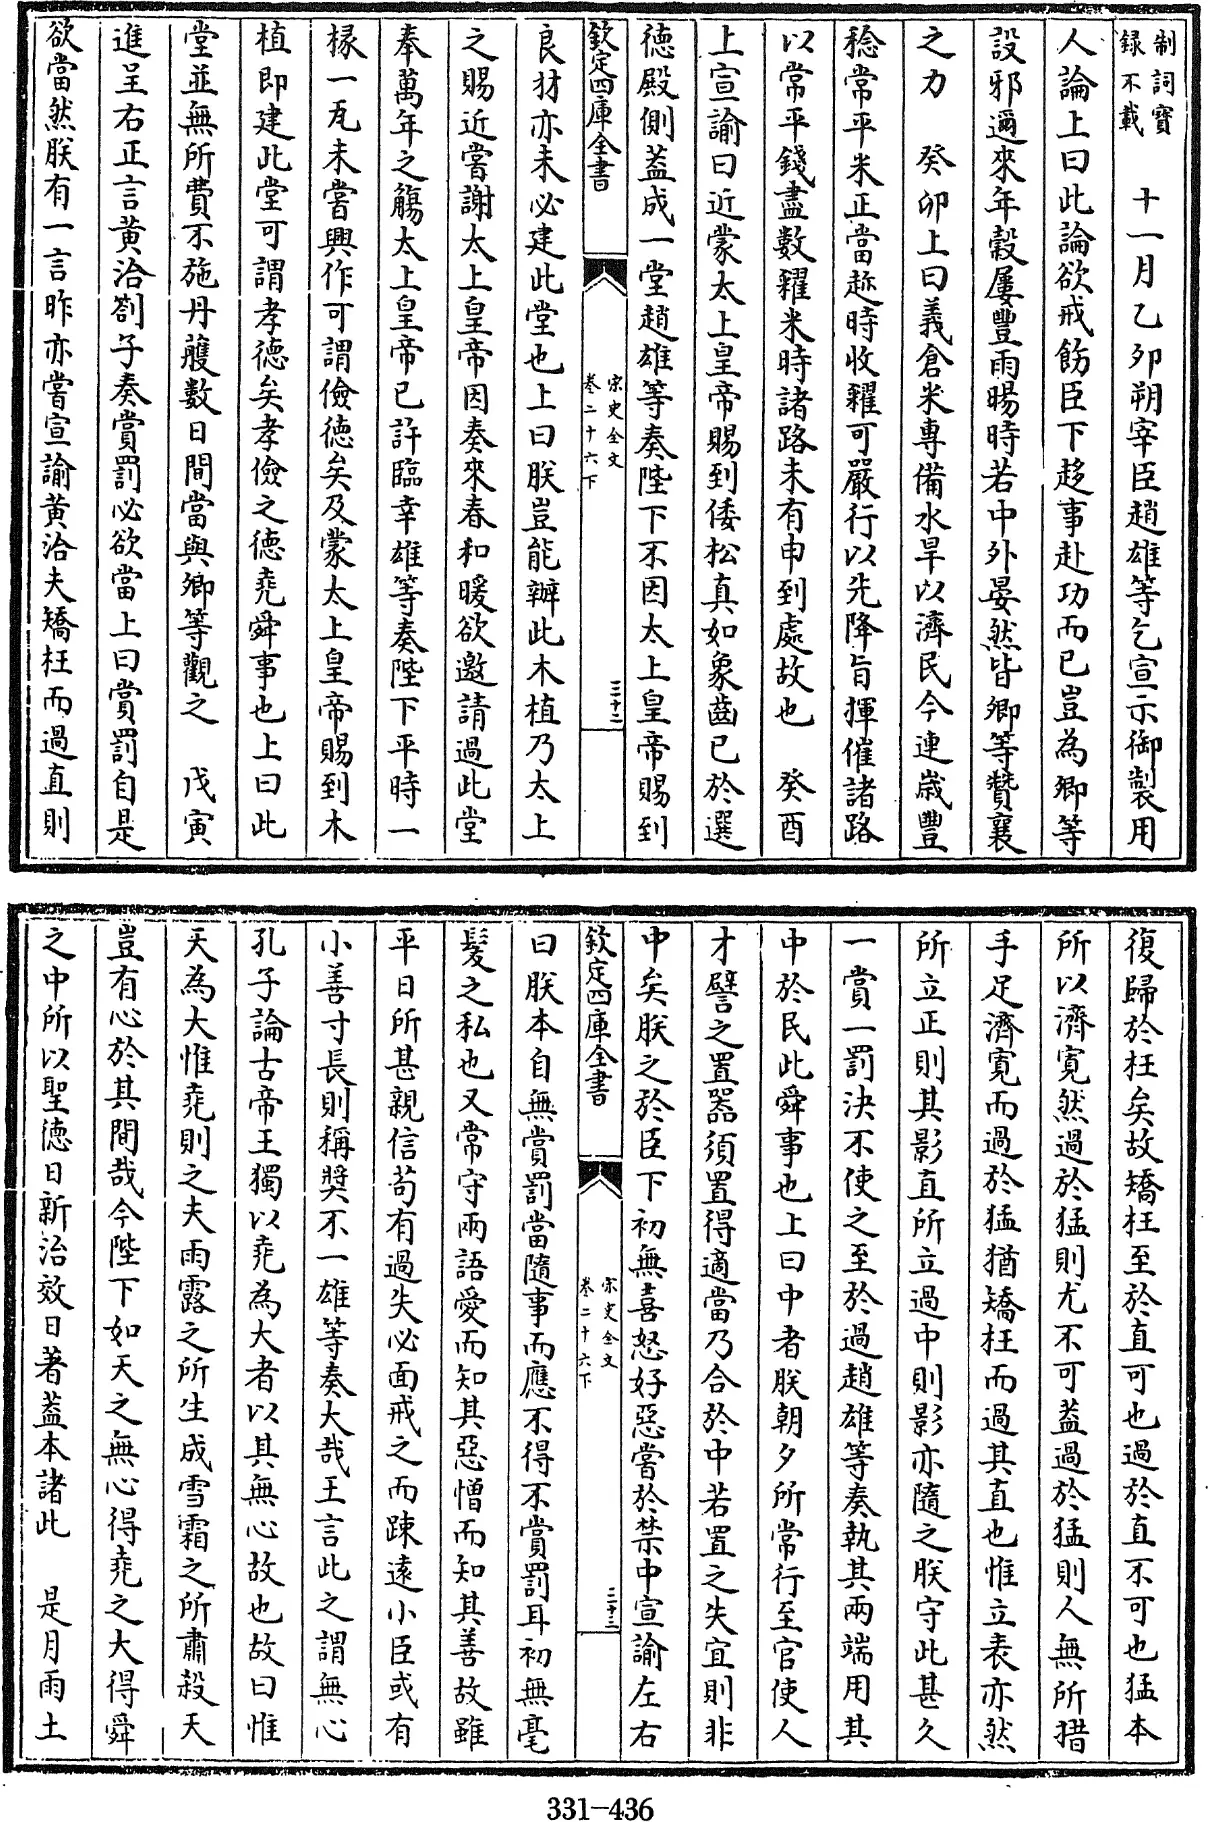 制詞寶
録不載
十一月乙卯朔宰臣趙雄等乞宣示御製用
人論上曰此論欲戒飭臣下趍事赴功而已豈為卿等
設邪邇來年穀屢豐雨暘時若中外晏然皆卿等贊襄
之力　癸卯上曰義倉米專備水旱以濟民今連歲豐
稔常平米正當趂時收糴可嚴行以先降旨揮催諸路
以常平錢盡數糴米時諸路未有申到處故也　癸酉
上宣諭曰近蒙太上皇帝賜到倭松真如象齒已於選
德殿側葢成一堂趙雄等奏陛下不因太上皇帝賜到
欽定四庫全書
宋史全文
卷二十六下
三十二
良材亦未必建此堂也上曰朕豈能辦此木植乃太上
之賜近嘗謝太上皇帝因奏來春和暖欲邀請過此堂
奉萬年之觴太上皇帝已許臨幸雄等奏陛下平時一
椽一瓦未嘗興作可謂儉德矣及蒙太上皇帝賜到木
植即建此堂可謂孝德矣孝儉之德堯舜事也上曰此
堂並無所費不施丹雘數日間當與卿等觀之　戊寅
進呈右正言黃洽劄子奏賞罰必欲當上曰賞罰自是
欲當然朕有一言昨亦嘗宣諭黃洽夫矯枉而過直則
復歸於枉矣故矯枉至於直可也過於直不可也猛本
所以濟寬然過於猛則尤不可葢過於猛則人無所措
手足濟寬而過於猛猶矯枉而過其直也惟立表亦然
所立正則其影直所立過中則影亦隨之朕守此甚久
一賞一罰決不使之至於過趙雄等奏執其兩端用其
中於民此舜事也上曰中者朕朝夕所常行至官使人
才譬之置器須置得適當乃合於中若置之失宜則非
中矣朕之於臣下初無喜怒好惡嘗於禁中宣諭左右
欽定四庫全書
宋史全文
卷二十六下
三十三
曰朕本自無賞罰當隨事而應不得不賞罰耳初無毫
髮之私也又常守兩語愛而知其惡憎而知其善故雖
平日所甚親信苟有過失必面戒之而踈遠小臣或有
小善寸長則稱奬不一雄等奏大哉王言此之謂無心
孔子論古帝王獨以堯為大者以其無心故也故曰惟
天為大惟堯則之夫雨露之所生成雪霜之所肅殺天
豈有心於其間哉今陛下如天之無心得堯之大得舜
之中所以聖德日新治效日著葢本諸此　是月雨土
331-436